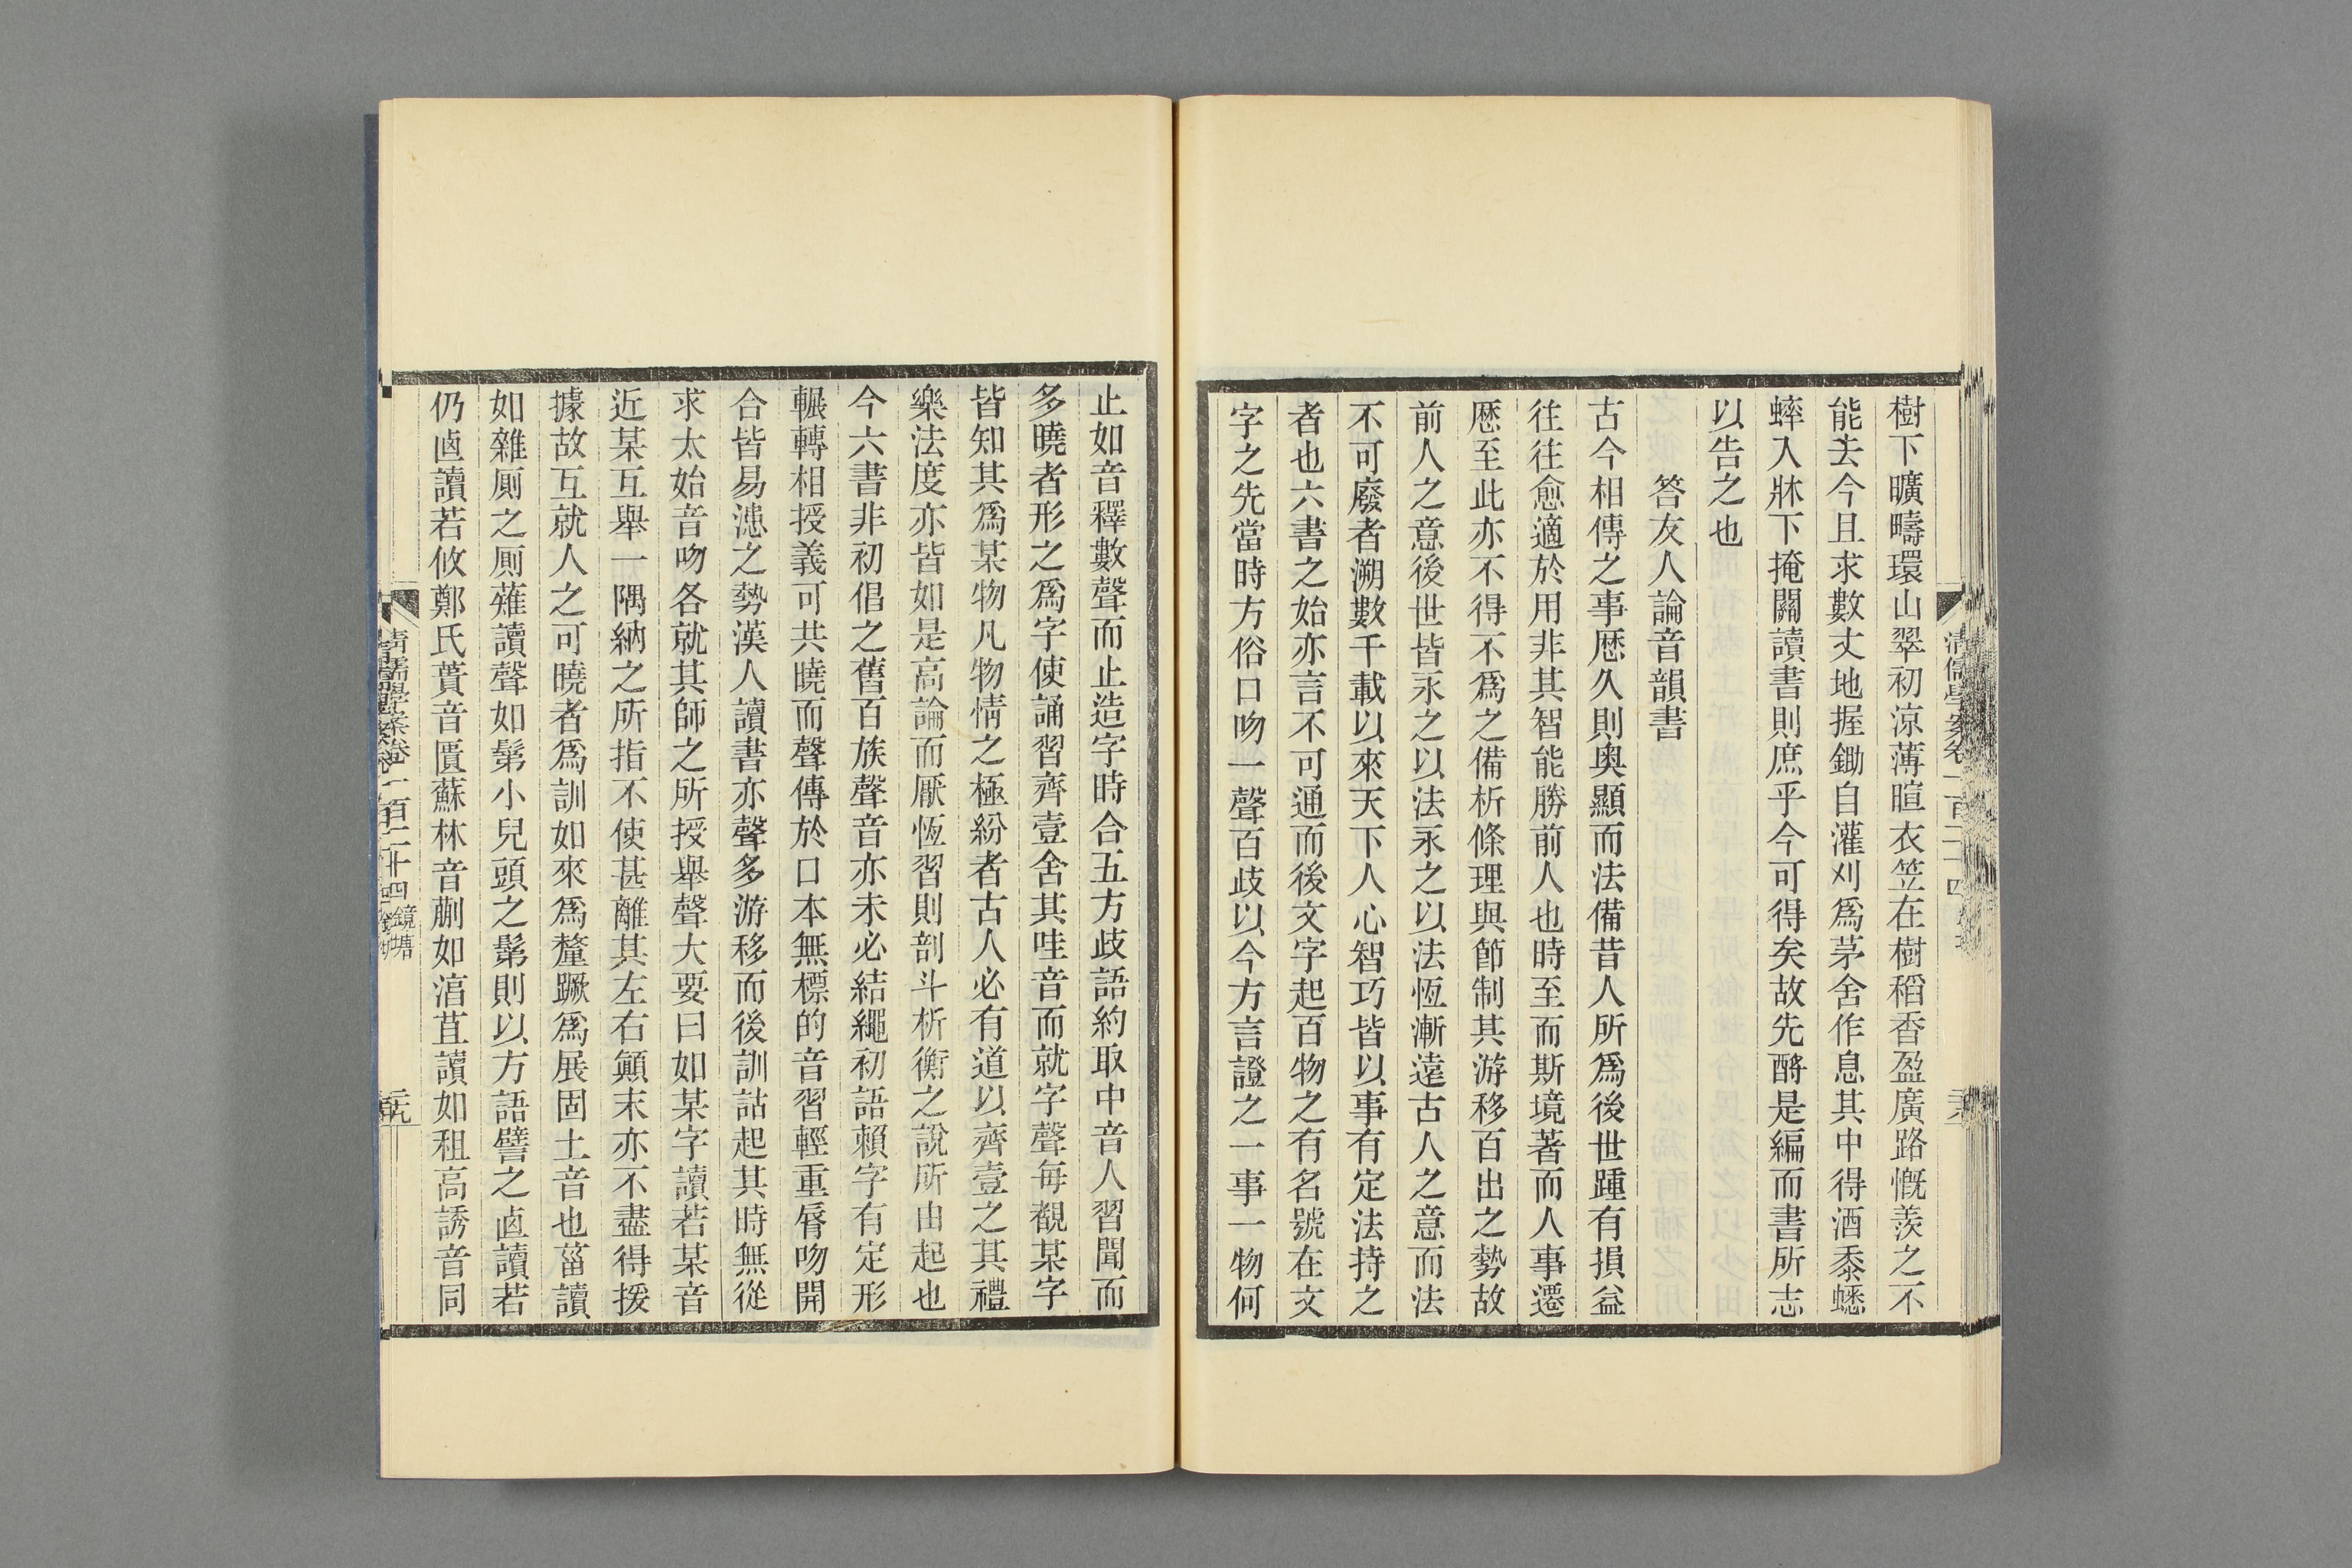 樹下曠疇環山翠初涼薄暄衣笠在樹稻香盈廣路慨羨之不
能去今且求數丈地握鋤自灌刈爲茅舍作息其中得酒黍蟋
蟀入牀下掩關讀書則庶乎今可得矣故先酹是編而書所志
以告之也
答友人論音韻書
古今相傳之事歷久則奧顯而法備昔人所爲後世踵有損益
往往愈適於用非其智能勝前人也時至而斯境著而人事遷
歷至此亦不得不爲之備析條理與節制其游移百出之勢故
前人之意後世皆永之以法永之以法恆漸遠古人之意而法
不可廢者溯數千載以來天下人心智巧皆以事有定法持之
者也六書之始亦言不可通而後文字起百物之有名號在文
字之先當時方俗口吻一聲百歧以今方言證之一事一物何
止如音釋數聲而止造字時合五方歧語約取中音人習聞而
多曉者形之爲字使誦習齊壹舍其哇音而就字聲每覩某字
皆知其爲某物凡物情之極紛者古人必有道以齊壹之其禮
樂法度亦皆如是高論而厭恆習則剖斗析衡之說所由起也
今六書非初倡之舊百族聲音亦未必結繩初語賴字有定形
輾轉相授義可共曉而聲傳於口本無標的音習輕重脣吻開
合皆易漶之勢漢人讀書亦聲多游移而後訓詁起其時無從
求太始音吻各就其師之所授舉聲大要曰如某字讀若某音
近某互舉一隅納之所指不使甚離其左右顚末亦不盡得援
據故互就人之可曉者爲訓如來爲釐蹶爲展固土音也菑讀
如雜厠之厠薙讀聲如鬀小兒頭之鬀則以方語譬之卤讀若
仍卤讀若攸鄭氏蕢音匱蘇林音蒯如涽苴讀如租高誘音同
清儒學案卷二百二十四 鏡塘